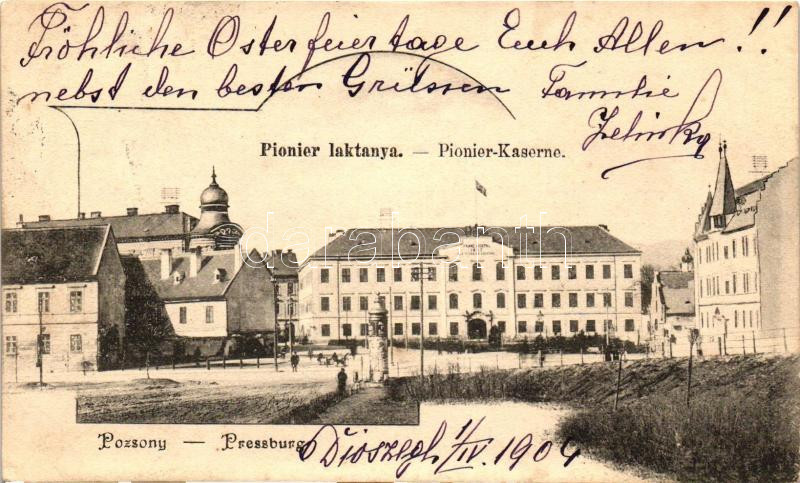 Fröhliche Osterfeiertage Euch Allen !!
nebst den besten Grüssen Familie
Zelinka
Pionier laktanya. — Pionier-Kaserne.
darabanth
Pozsony — Pressburg
Dioszegh 1/IV. 1904